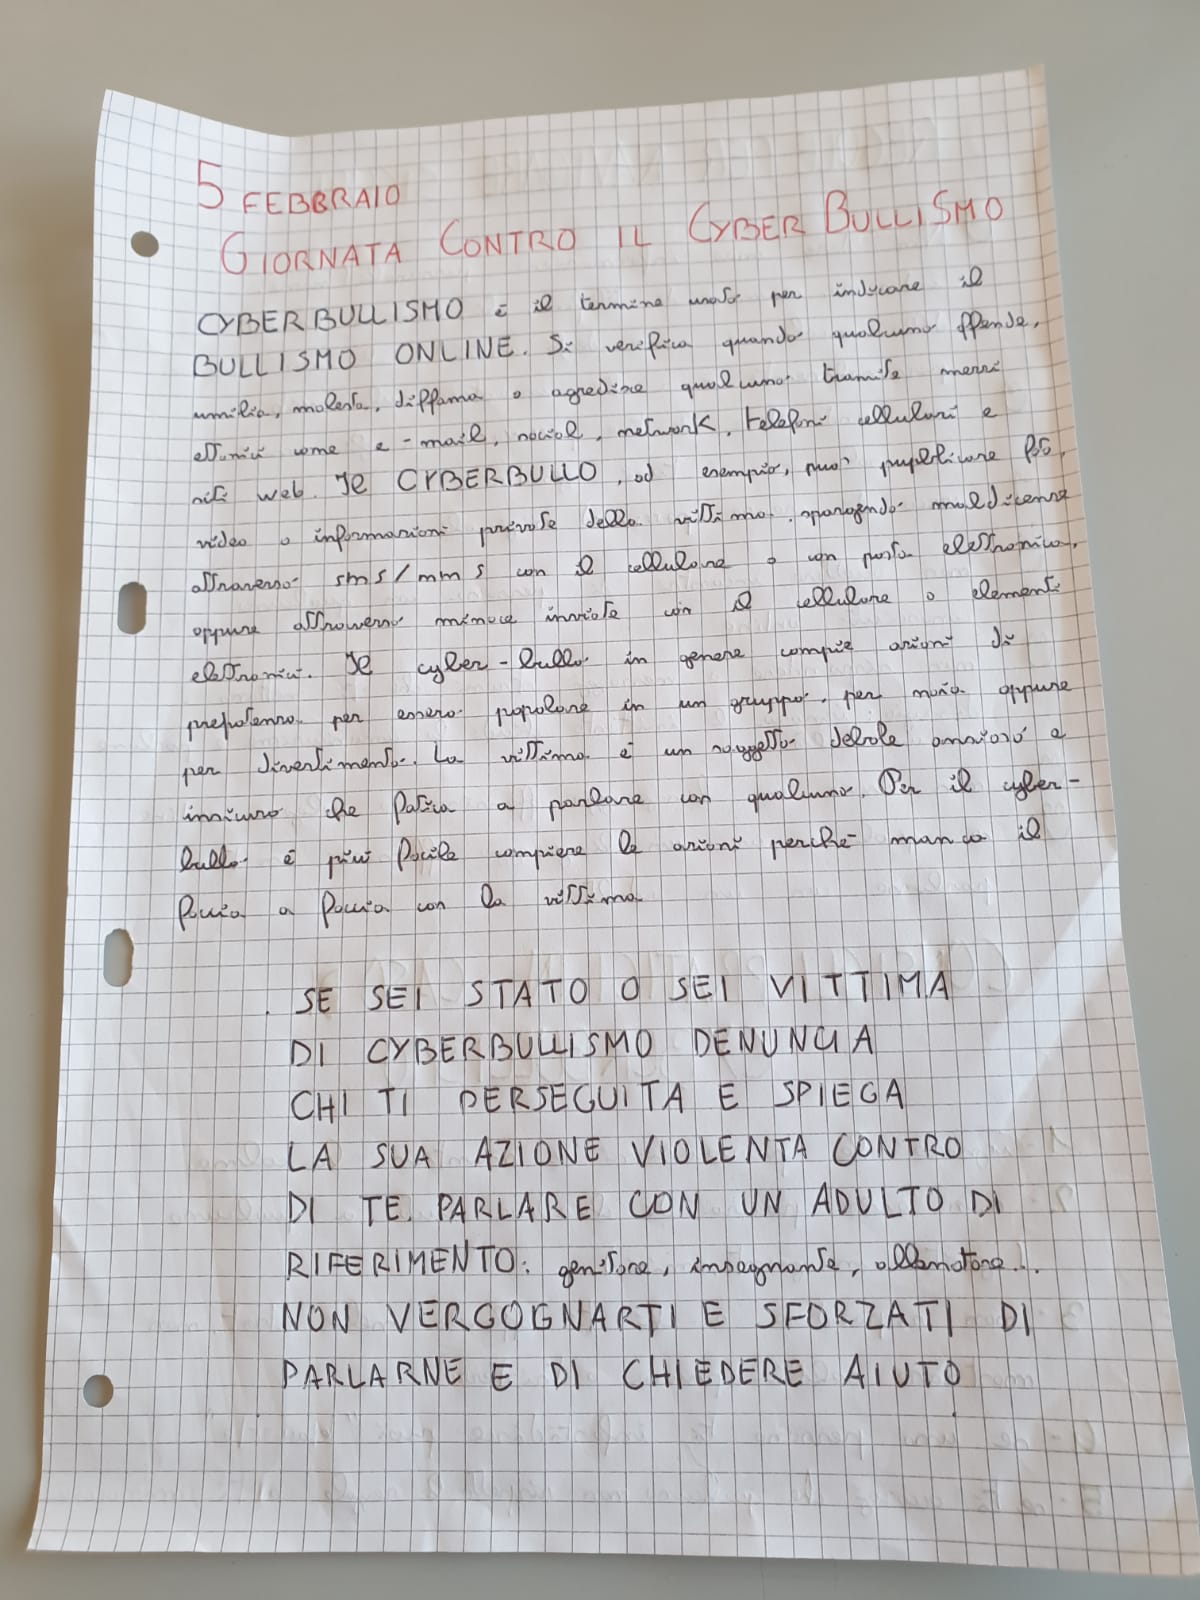 5 FEBBRAIO
GIORNATA CONTRO IL CYBER BULLISMO
CYBERBULLISMO è il termine usato per indicare il
BULLISMO ONLINE. Si verifica quando qualcuno offende,
umilia, molesta, diffama o agredisce qualcuno tramite mezzi
come e-mail, social, network, telefoni cellulari e
siti web. Il CYBERBULLO, ad esempio, può foto,
video o informazioni private della vittima, spargendo maldicenze
attraverso sms/mms con il cellulare o con posta elettronica,
oppure attraverso minacce inviate con il cellulare o elementi
elettronici. Il cyber-bullo in genere compie azioni di
prepotenza per essere popolare in un gruppo, per noia oppure
per divertimento. La vittima è un soggetto debole ansioso e
insicuro che fatica a parlare con qualcuno. Per il cyber-
bullo è più facile compiere le azioni perché manca il
faccia a faccia con la vittima.
SE SEI STATO O SEI VITTIMA
DI CYBERBULLISMO DENUNCIA
CHI TI PERSEGUITA E SPIEGA
LA SUA AZIONE VIOLENTA CONTRO
DI TE. PARLARE CON UN ADULTO DI
RIFERIMENTO: genitore, insegnante, allenatore...
NON VERGOGNARTI E SFORZATI DI
PARLARNE E DI CHIEDERE AIUTO